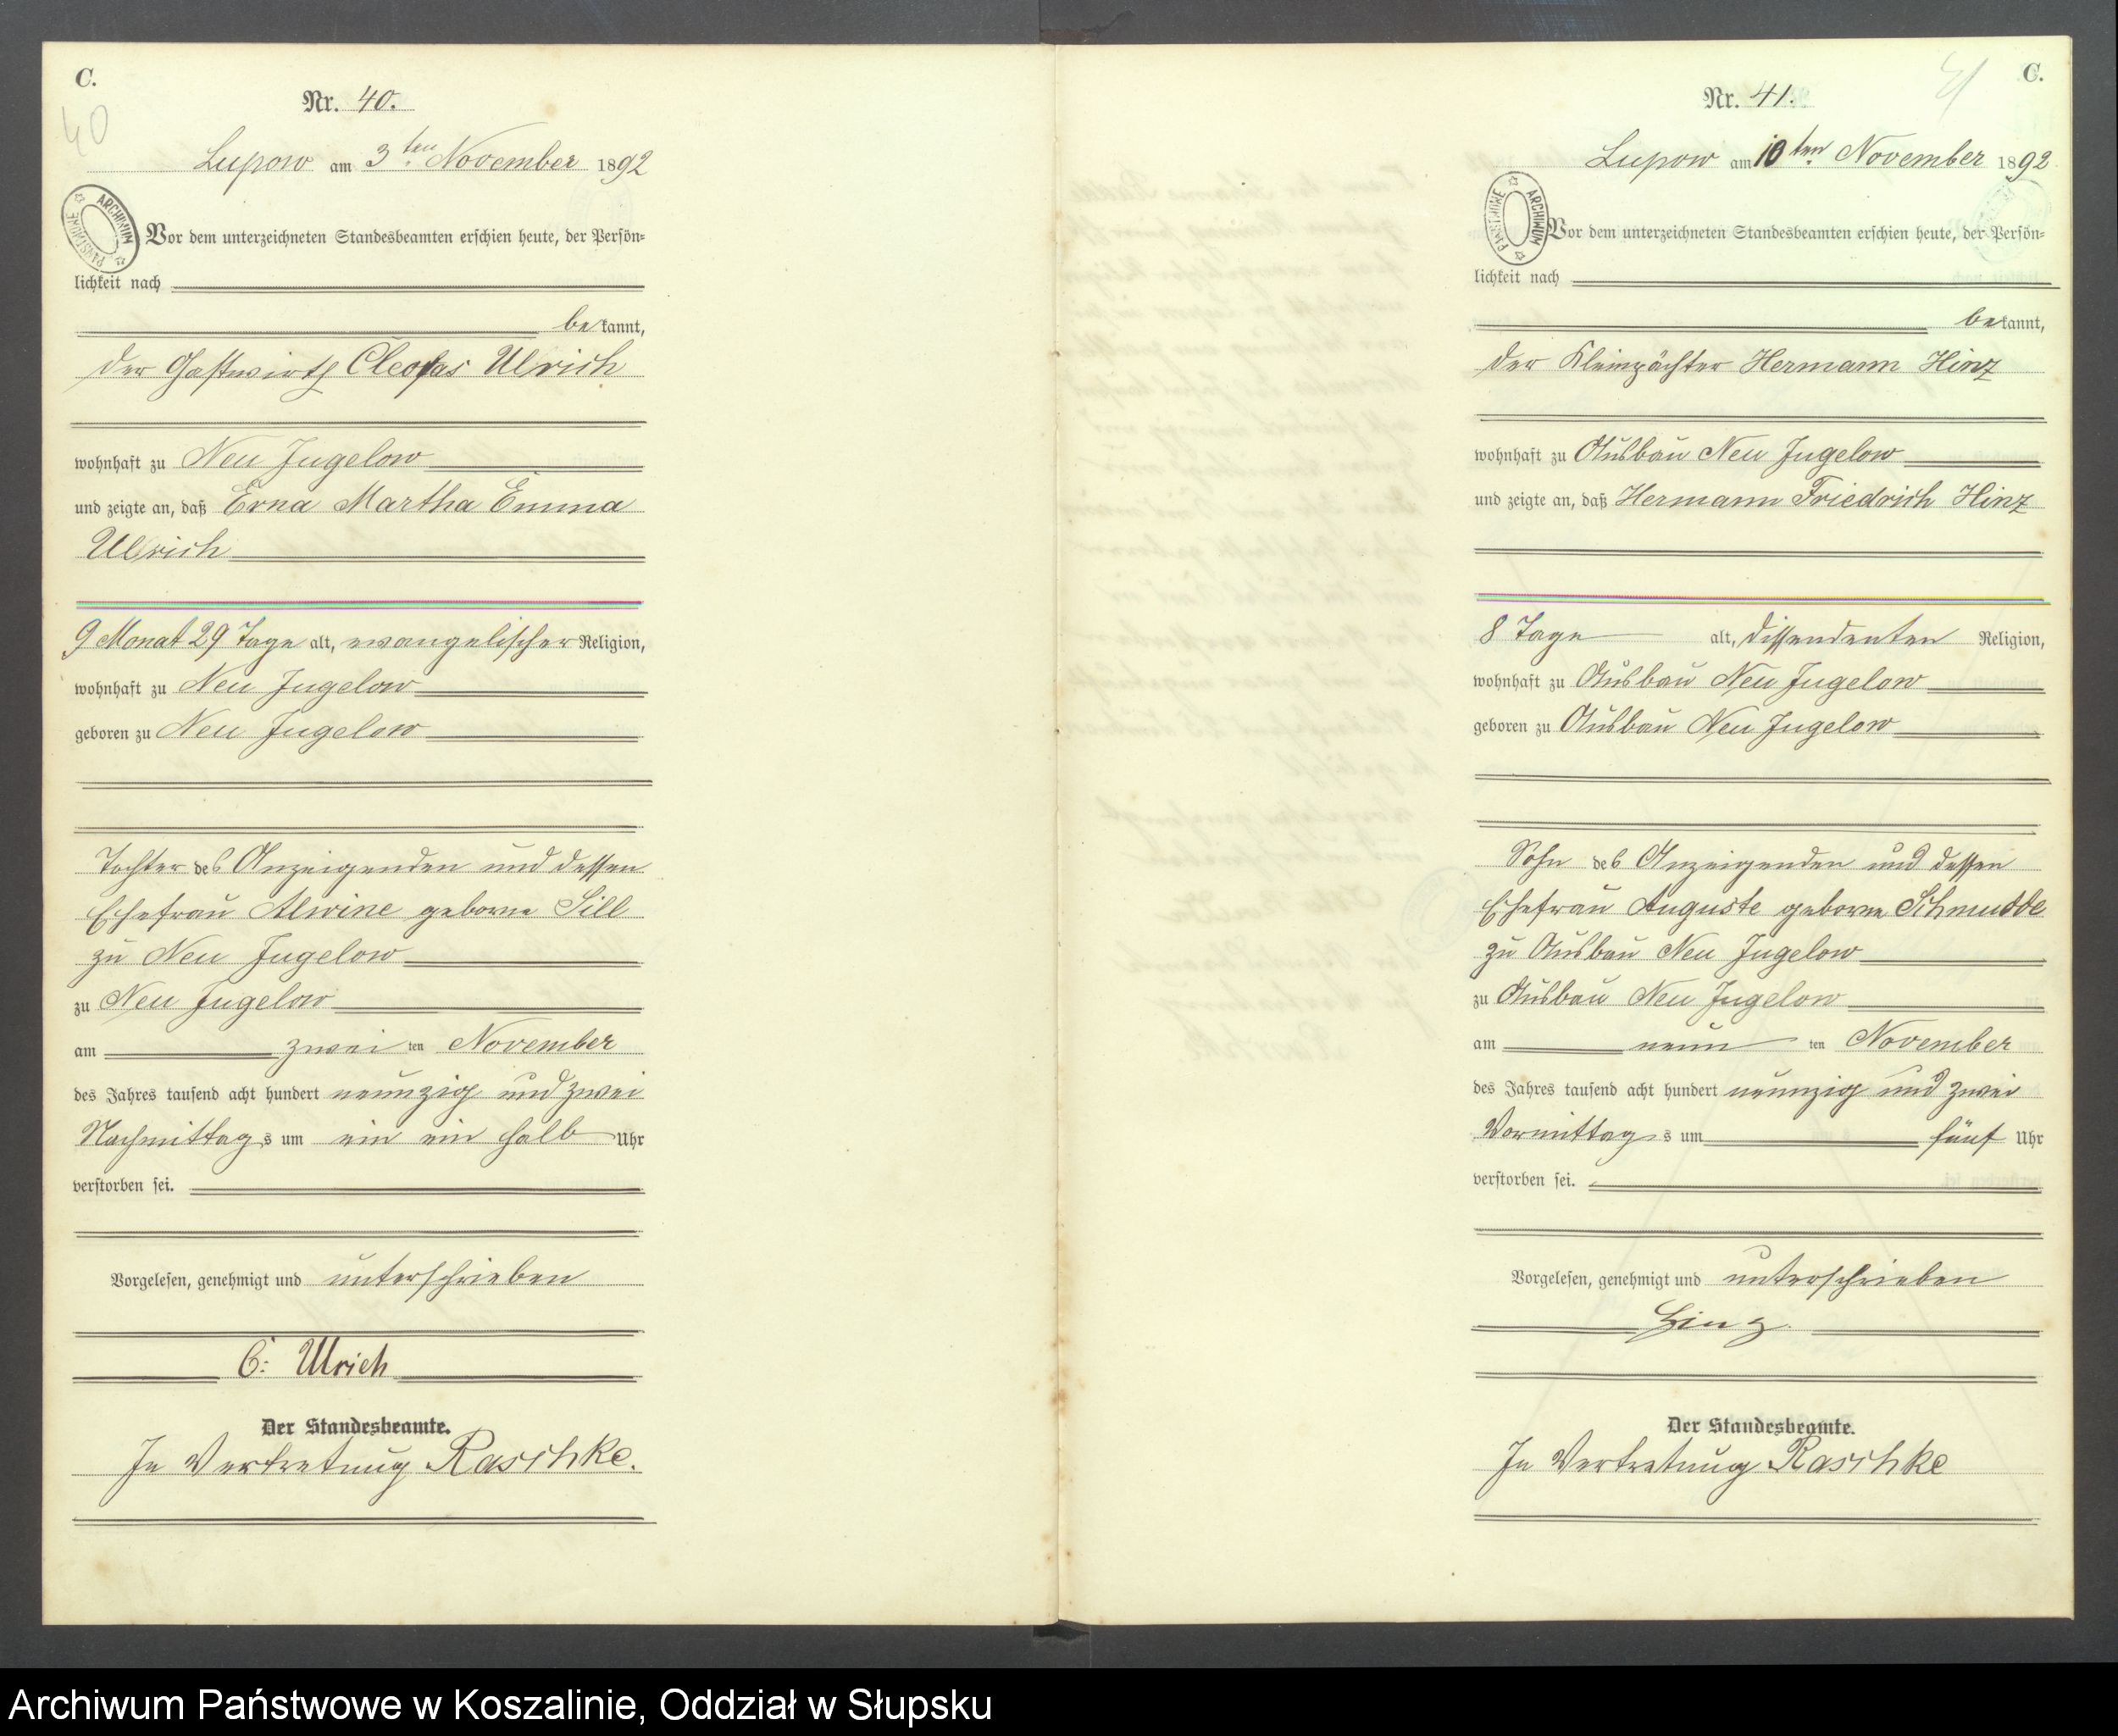 C.
40
Nr. 40.
Lupow am 3ten November 1892
ARCHIWUM PAŃSTWOWE
Vor dem unterzeichneten Standesbeamten erschien heute, der Persön=
lichkeit nach
bekannt,
der Gastwirth Cleofas Ulrich
wohnhaft zu Neu Jugelow
und zeigte an, daß Erna Martha Emma
Ulrich
9 Monat 29 Tage alt, evangelischer Religion,
wohnhaft zu Neu Jugelow
geboren zu Neu Jugelow
Tochter des Anzeigenden und dessen
Ehefrau Alwine geborne Sill
zu Neu Jugelow
zu Neu Jugelow
am zwei ten November
des Jahres tausend acht hundert neunzig und zwei
Nachmittags um ein ein halb Uhr
verstorben sei.
Vorgelesen, genehmigt und unterschrieben
C: Ulrich
Der Standesbeamte.
In Vertretung Raschke.
C.
41
Nr. 41.
Lupow am 10ten November 1892
ARCHIWUM PAŃSTWOWE
Vor dem unterzeichneten Standesbeamten erschien heute, der Persön=
lichkeit nach
bekannt,
der Kleinpächter Hermann Hinz
wohnhaft zu Ausbau Neu Jugelow
und zeigte an, daß Hermann Friedrich Hinz
8 Tage alt, dissendenten Religion,
wohnhaft zu Ausbau Neu Jugelow
geboren zu Ausbau Neu Jugelow
Sohn des Anzeigenden und dessen
Ehefrau Auguste geborne Schmudde
zu Ausbau Neu Jugelow
zu Ausbau Neu Jugelow
am neun ten November
des Jahres tausend acht hundert neunzig und zwei
Vormittags um fünf Uhr
verstorben sei.
Vorgelesen, genehmigt und unterschrieben
Hinz.
Der Standesbeamte.
In Vertretung Raschke
Archiwum Państwowe w Koszalinie, Oddział w Słupsku